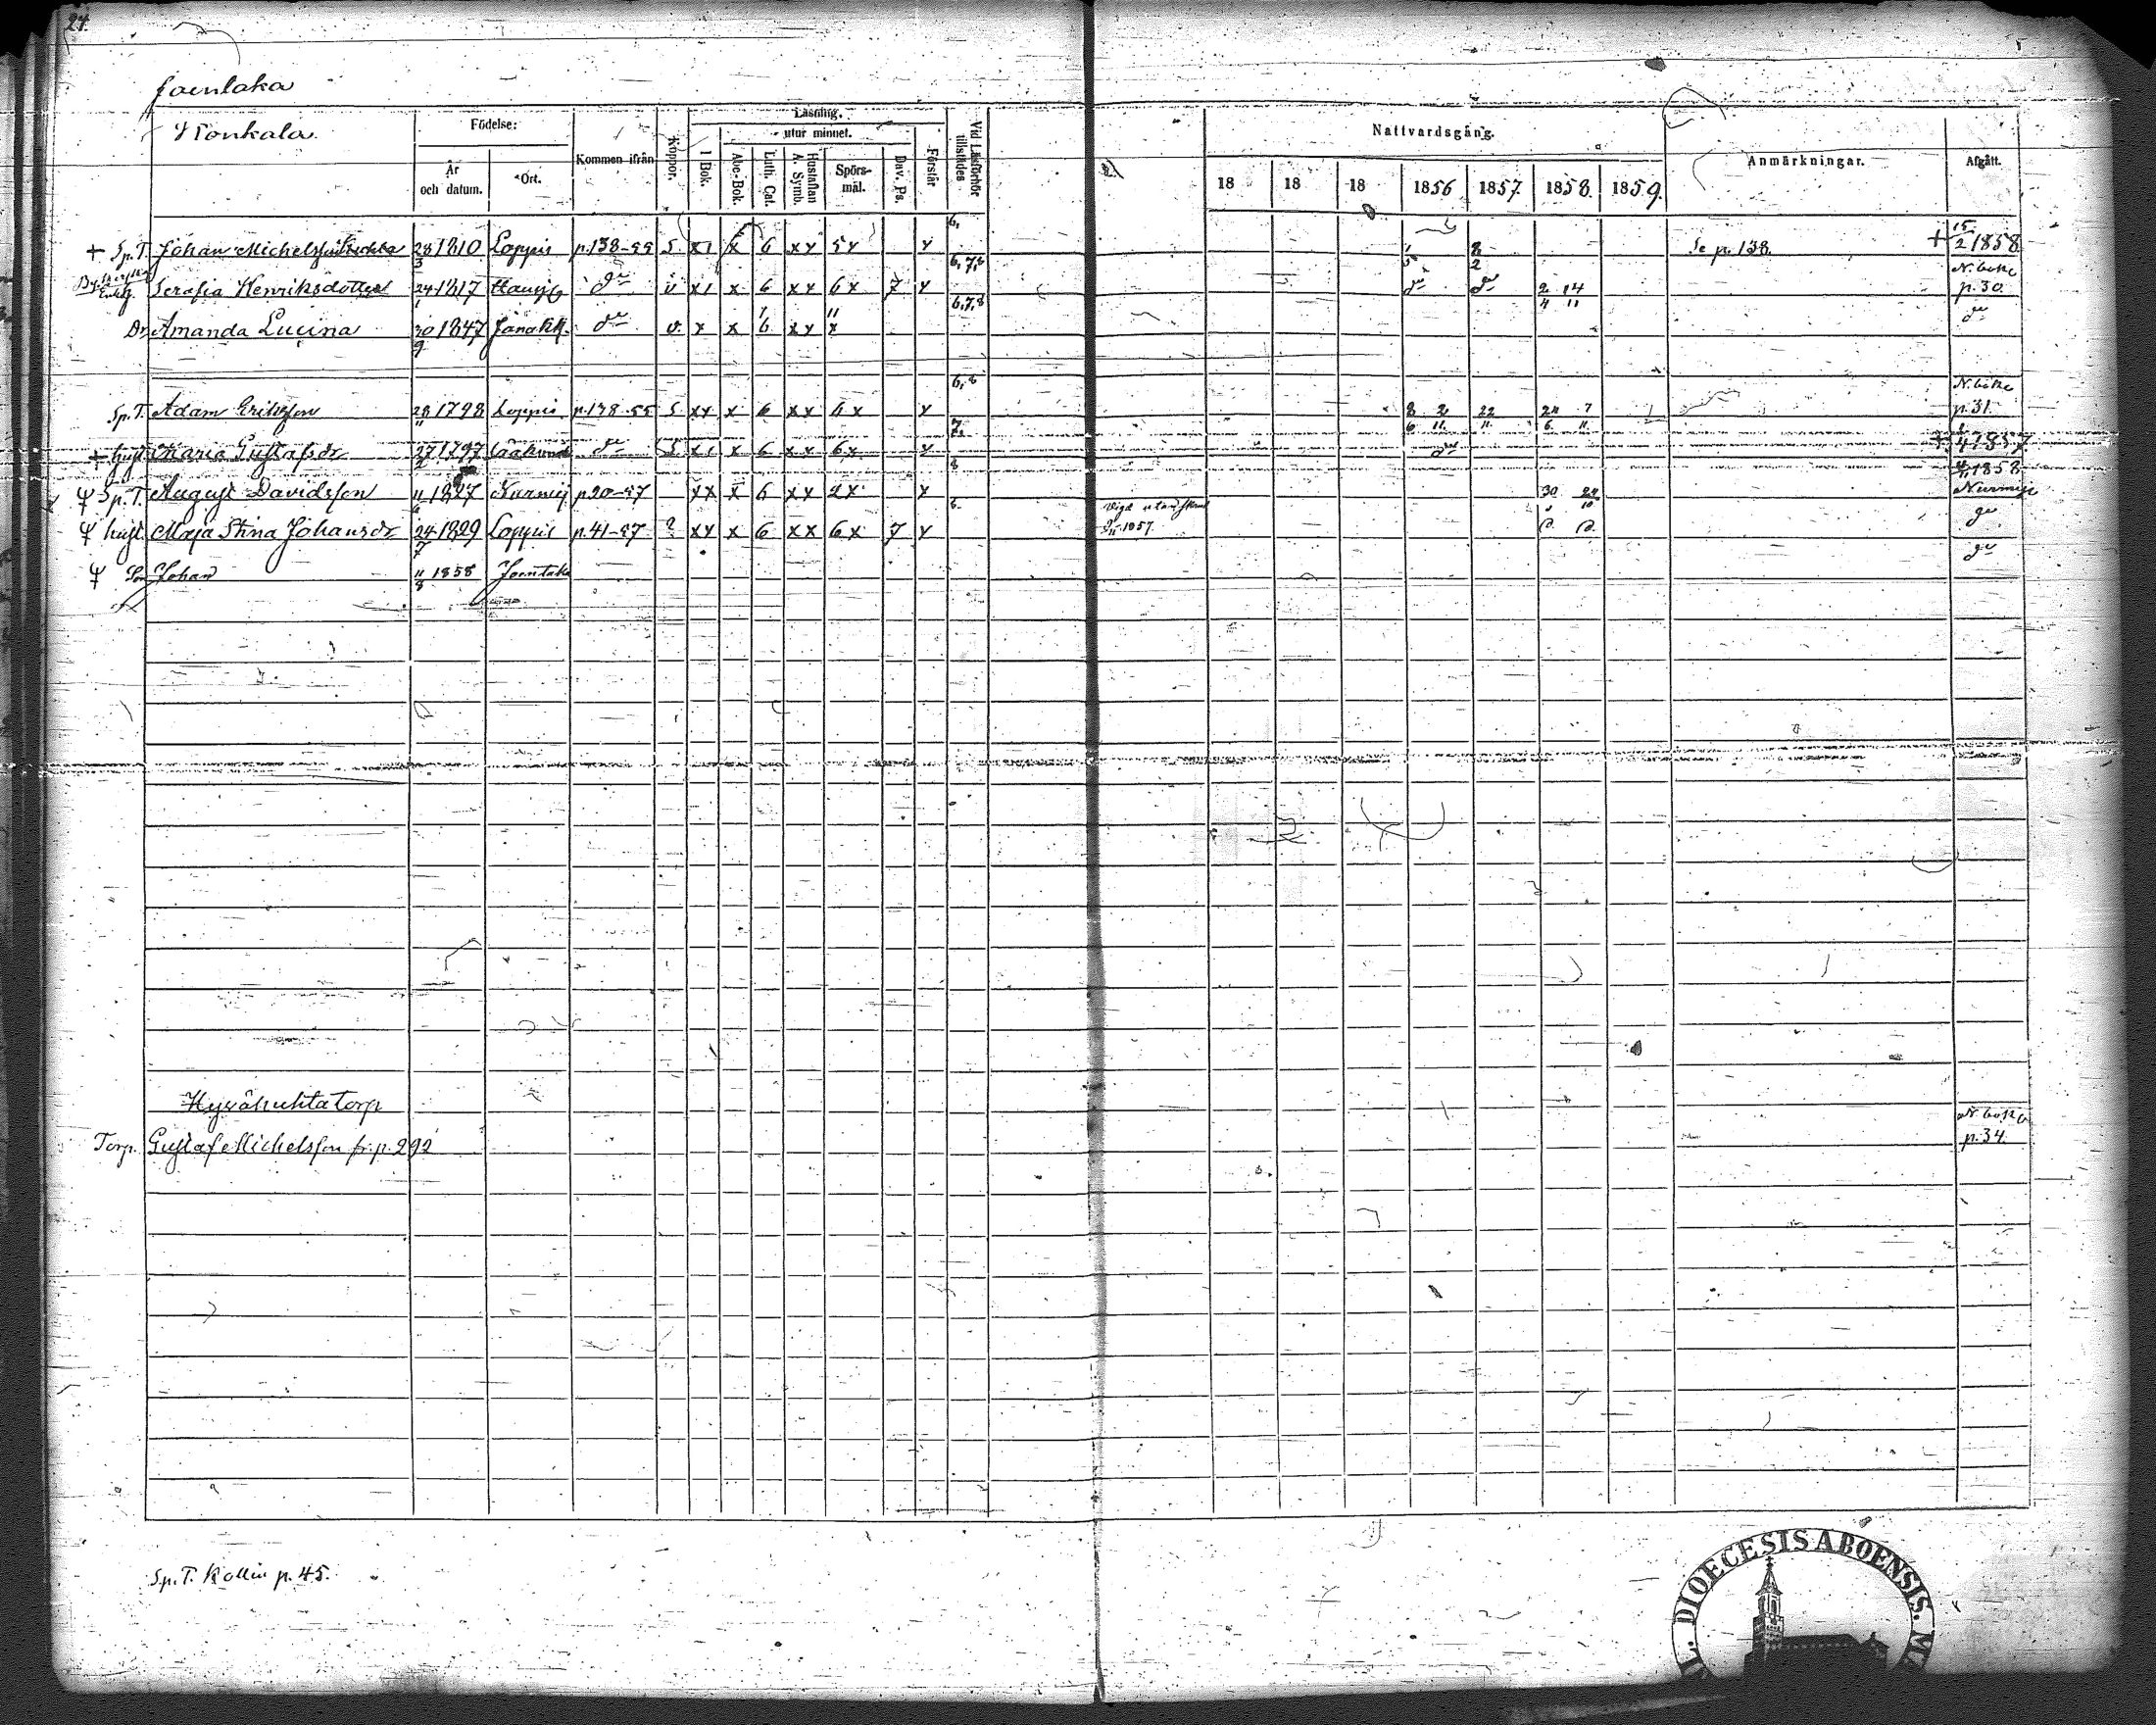 24.
Joentaka
Konkala
Födelse:
År och datum.
Ort.
Kommen ifrån
Koppor.
Läsning.
utur minnet.
I Bok.
Abc-Bok.
Luth. Cat.
Hustaflan A. Symb.
Spörsmål.
Dav. Ps.
Förstår
Vid Läsförhör tillstädes
Nattvardsgång.
18 18 18 1856 1857. 1858. 1859.
Anmärkningar.
Afgått.
+ Sp.T. Johan Michelsson 28/3 1810 Loppis p.138-55 S x1 x 6 xx 5x x 6, 1/5 8/2 Se p. 138. + 15/2 1858
Enk. Serafia Henriksdotter 24/1 1817 Hausj. do v x1 x 6 xx 6x 7 x 6,7,8 do do 2/4 14/11 N. boke p.30.
Dr Amanda Lucina 30/9 1847 Janakk. do v. x x 6 xx x 6,7,8 do
Sp.T. Adam Eriksson 28/11 1798 Loppis p.138-55 S xx x 6 xx 6x x 6,8 8/6 2/11 22/11 24/6 7/11 N. boke p.31.
+ hust. Maria Gustafsdr 27/2 1797 do S x1 x 6 xx 6x x 7. do + 1857
Sp.T. August Davidsson 1827 Nurmij p20-57 xx x 6 xx 2x x 8 30 24/10 1858 Nurmije
hust. Maja Stina Johansdr 24/7 1829 Loppis p.41-57 ? xx x 6 xx 6x 7 x 8. Vigd 1857. do
Son Johan 11/8 1858 Joentaka do
Hyvähuhta Torp
Torp. Gustaf Michelsson fr. p. 292 N. boke p.34.
Sp.T. Kollin p. 45.
DIOECESIS ABOENSIS.